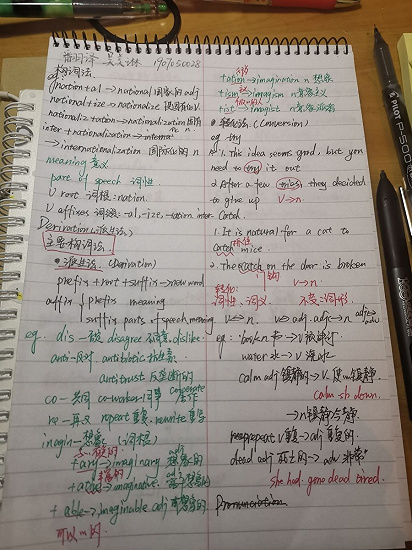 190705028
构词法
nation+al→national 国家的 adj
national+ize→nationalize 使国有化 v.
nationaliz+ation→nationalization 国有
inter+nationalization→
→internationalization 国际化的 n
meaning 意义
part of speech 词性
√ root 词根:nation.
√ affixes 词缀:-al,-ize,-ation,inter-
Derivation(派生法)
主要构词法
●派生法 (Derivation)
prefix+root+suffix→new word
affix prefix meaning
suffix parts of speech, meaning
eg. dis- disagree dislike
anti-反对 antibiotic 抗生素
antitrust 反垄断的
co- 共同 co-worker 同事 cooperate 合作
re- 再又 repeat 重复 rewrite 重写
imagin-想象 (词根)
+ary→imaginary 想象的 adj
→imaginative
+able→imaginable adj 可想象的
可以…的
+ation→imagination n 想象
+ism→imagism n 意象主义
+ist→imagist n 意象派者
●转化法 (Conversion)
eg. try
1. The idea seems good, but you
need to try it out
2. After a few tries, they decided
to give up V→n.
Catch.
1. It is natural for a cat to
catch mice.
2. The catch on the door is broken
钩 V→n
转化:
词性、词义 不变词形.
V↔n. V↔adj. adj↔n adj↔adv
eg:
water 水→V 浇水
calm adj 镇静的→V. 使…镇静
calm sb down.
→n 镇静
repeat v 重复→adj 重复的
dead adj 死亡的→adv 非常
she had gone dead tired.
Pronunciation
P-500